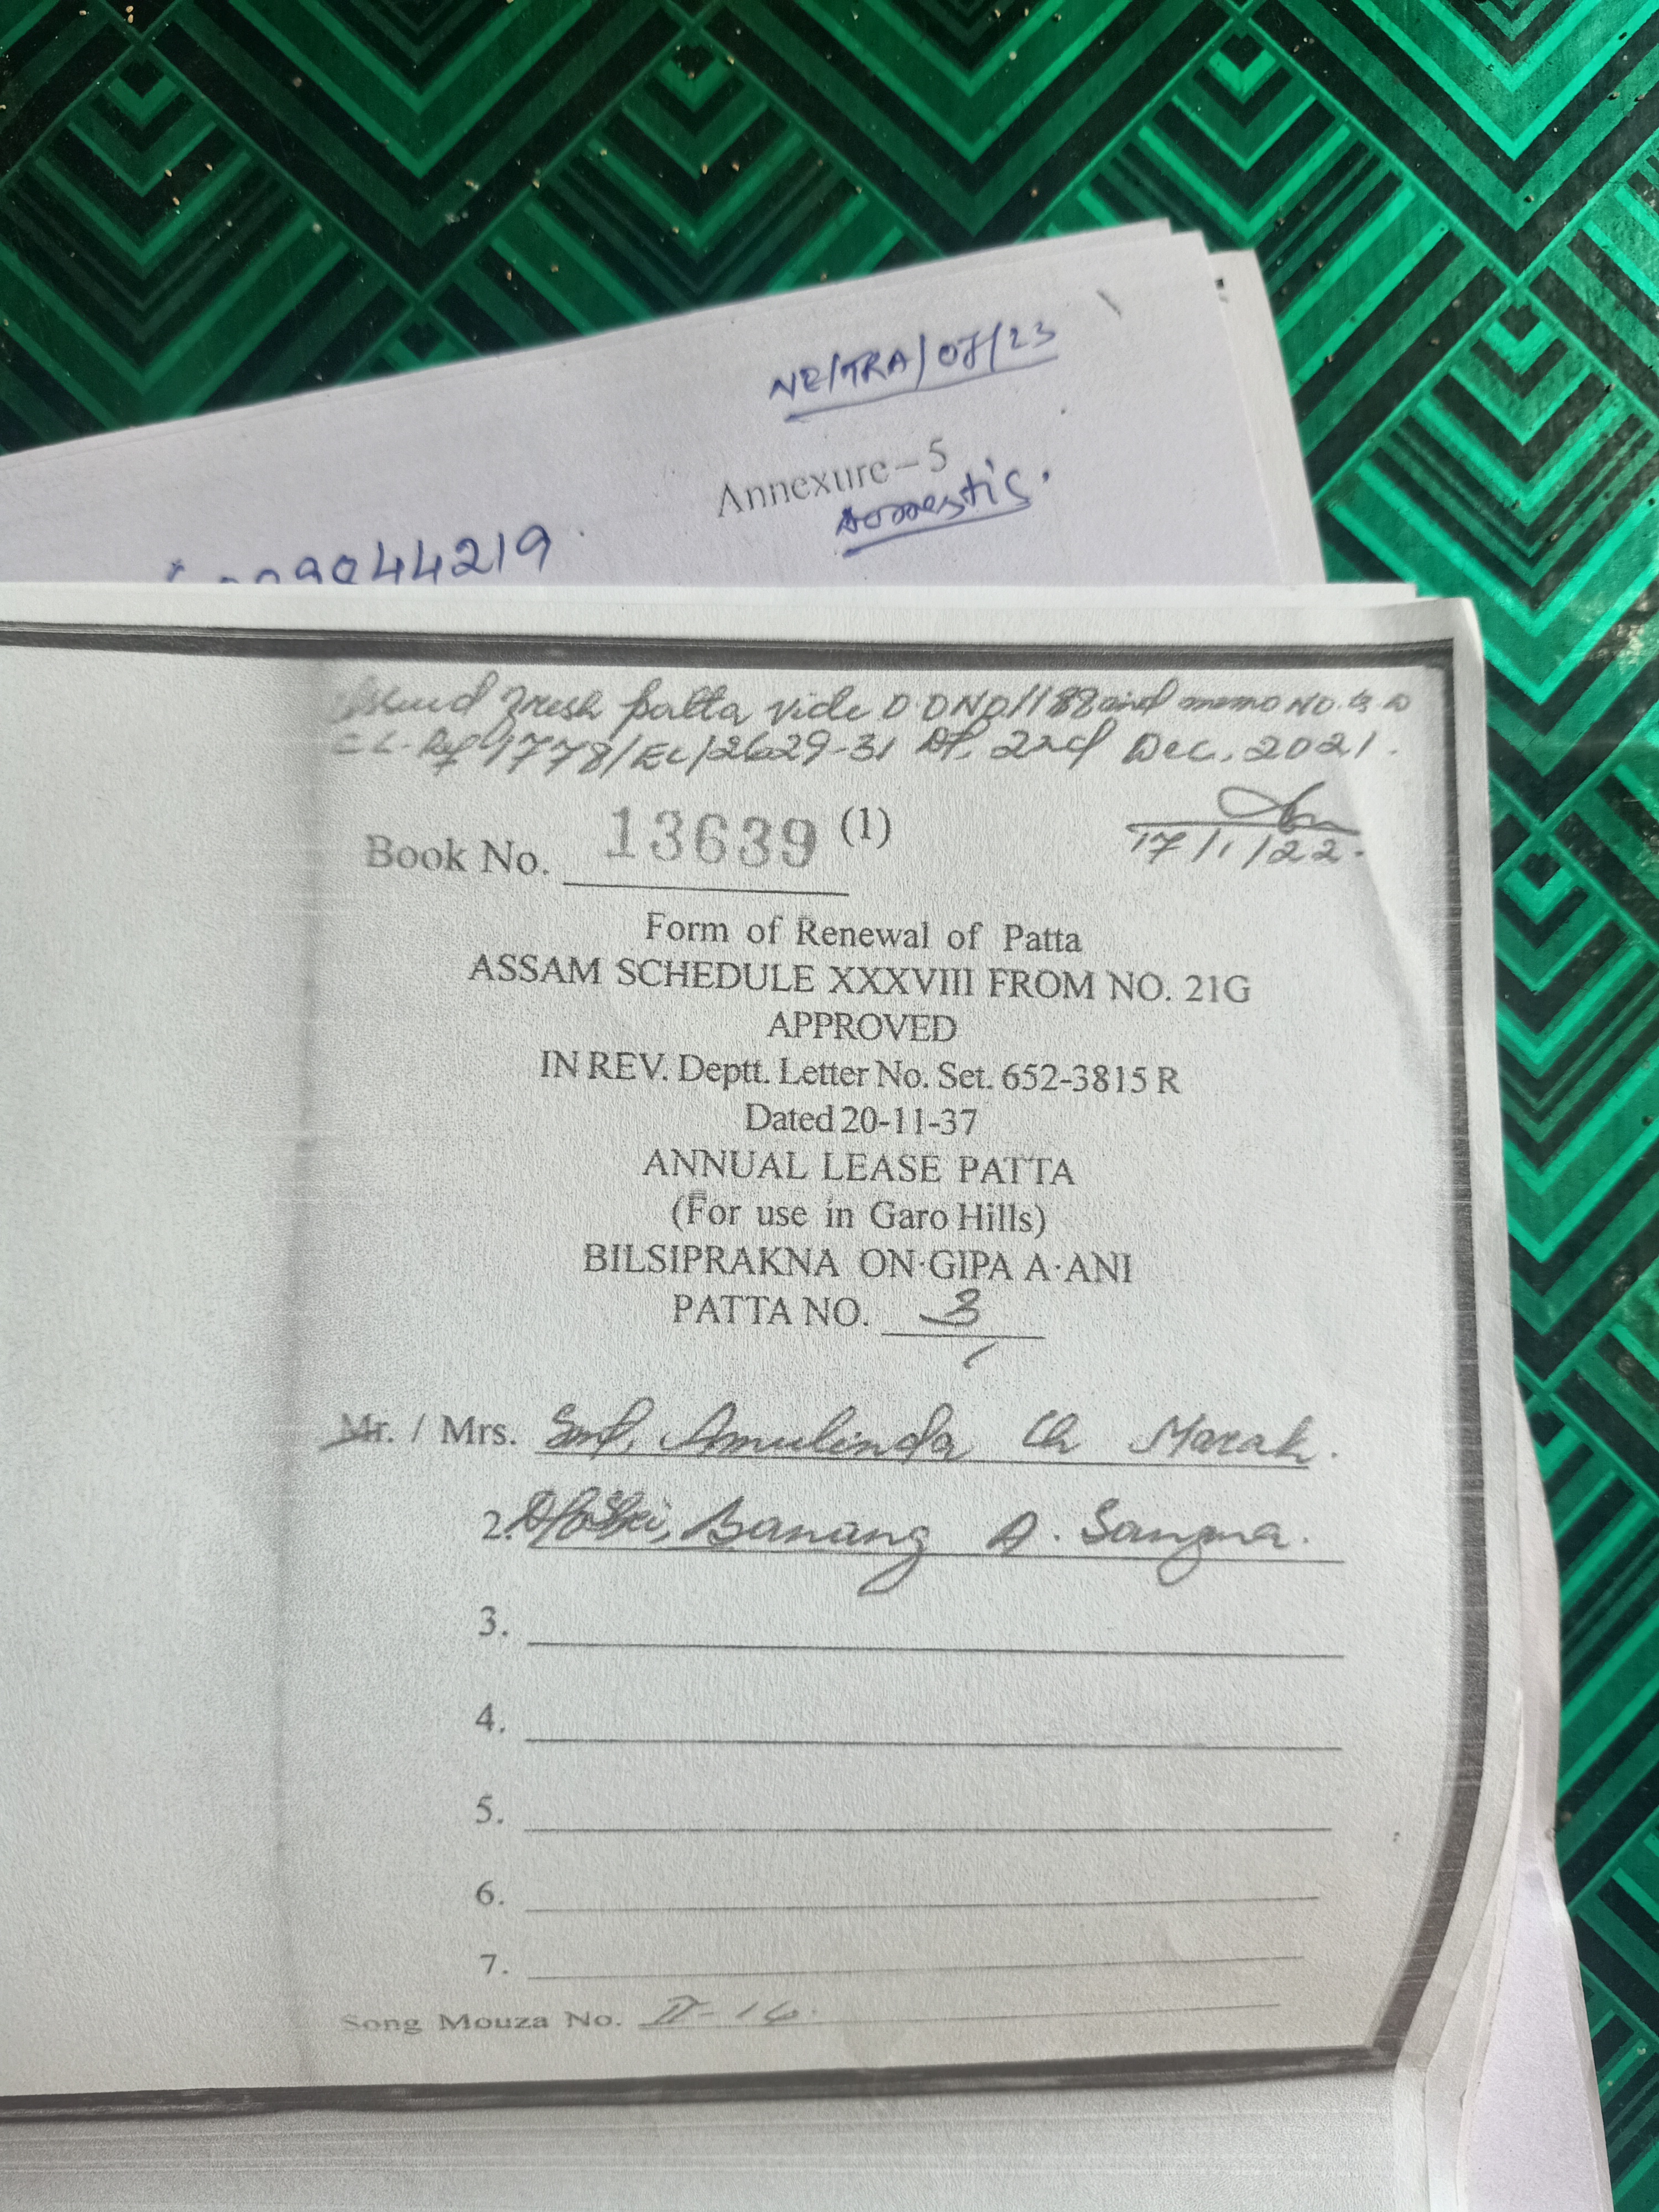 NE/TRA/07/23
Annexure – 5
Domestic.
9044219
Issued Fresh patta vide DDNO/188 and memo NO. G.D
EC. Ref 1778/EC/2629-31 Dt. 2nd Dec. 2021.
Book No. 13639 (1)
17/1/22.
Form of Renewal of Patta
ASSAM SCHEDULE XXXVIII FROM NO. 21G
APPROVED
IN REV. Deptt. Letter No. Set. 652-3815 R
Dated 20-11-37
ANNUAL LEASE PATTA
(For use in Garo Hills)
BILSIPRAKNA ON·GIPA A·ANI
PATTA NO. 3
Mr. / Mrs. Smt. Amulinda Ch Marak.
2. Banang A. Sangma.
3.
4.
5.
6.
7.
Song Mouza No. II-16.